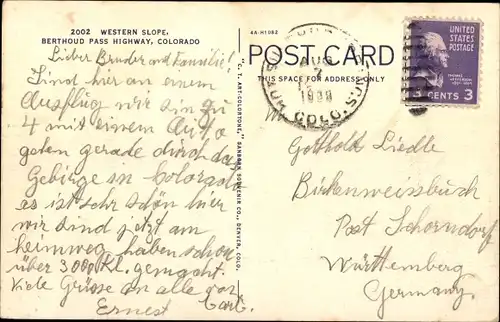 2002 WESTERN SLOPE,
BERTHOUD PASS HIGHWAY, COLORADO
4A-H1082
POST CARD
THIS SPACE FOR ADDRESS ONLY
Lieber Bruder und Familie!
Sind hier an einem
Ausflug wir sin zu
4 mit einem Auto
gerade durch das
Gebirge in Colorado
es ist sehr schön hier
wir sind jetzt am
heimweg haben schon
über 3000 Kl. gemacht
Viele Grüsse an alle
Ernest
"C. T. ART-COLORTONE," SANBORN SOUVENIR CO., DENVER, COLO.
AUG
1938
COLO.
UNITED STATES POSTAGE
THOMAS JEFFERSON
CENTS 3
Gotthold Liedle
Birkenweissbuch
Post Schorndorf
Württemberg
Germany.